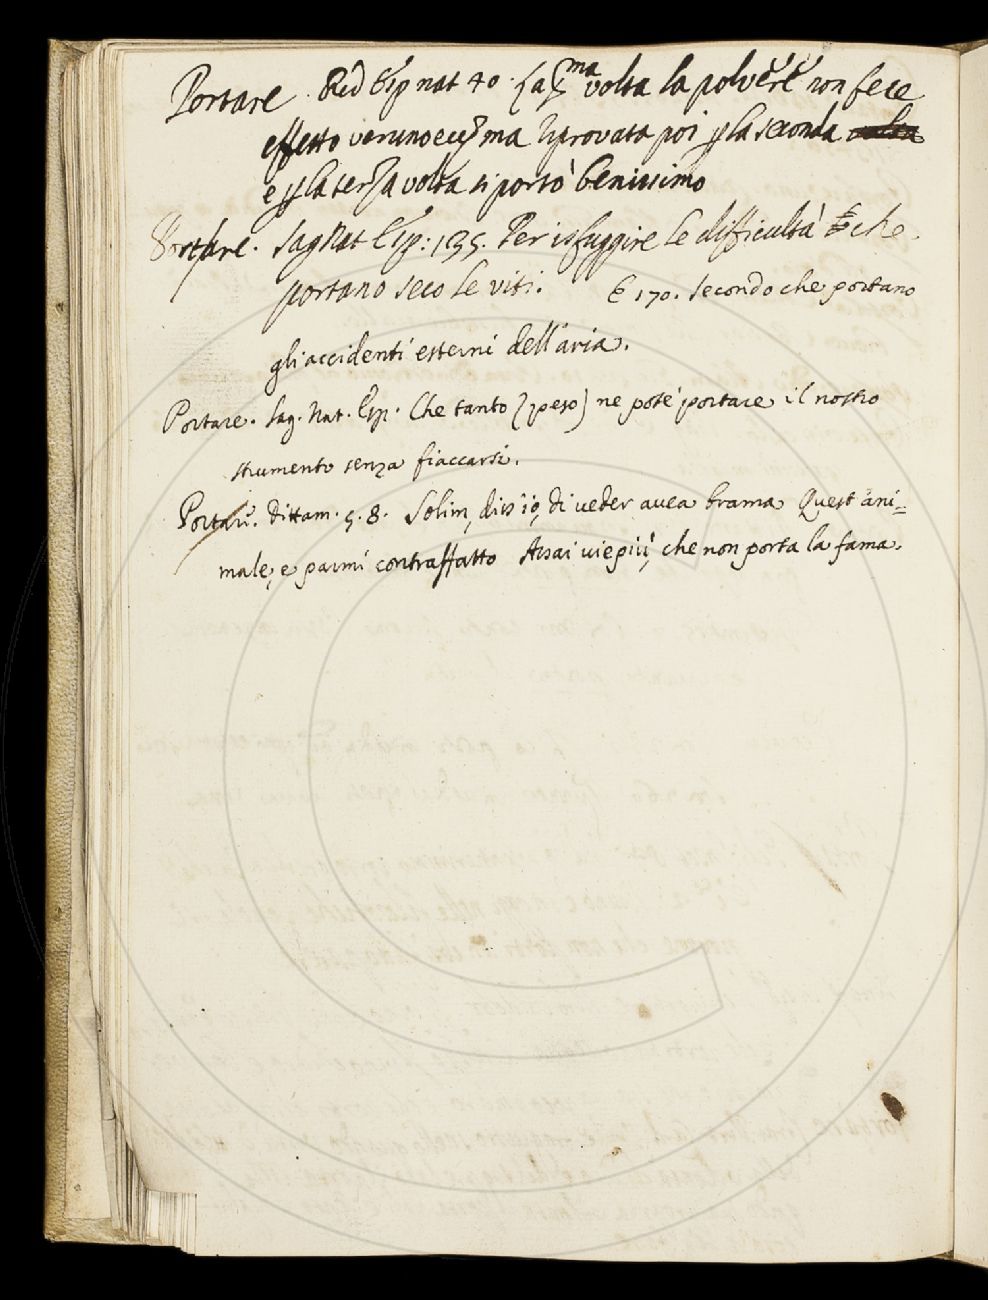 Portare. Red Esp nat 40. La p.ma volta la polvere non fece
effetto veruno ecc; ma riprovata poi p la seconda
e p la terza volta si portò benissimo
Portare. Sag Nat Esp: 135. Per isfuggire le difficultà che
portano seco le viti. E 170. secondo che portano
gli accidenti esterni dell'aria.
Portare. Sag. Nat. Esp. Che tanto (peso) ne potè portare il nostro
strumento senza fiaccarsi.
Portare. Dittam. 5. 8. Solin, diss'io, di veder avea brama Quest'ani=
male, e parmi contraffatto Assai viepiù, che non porta la fama.